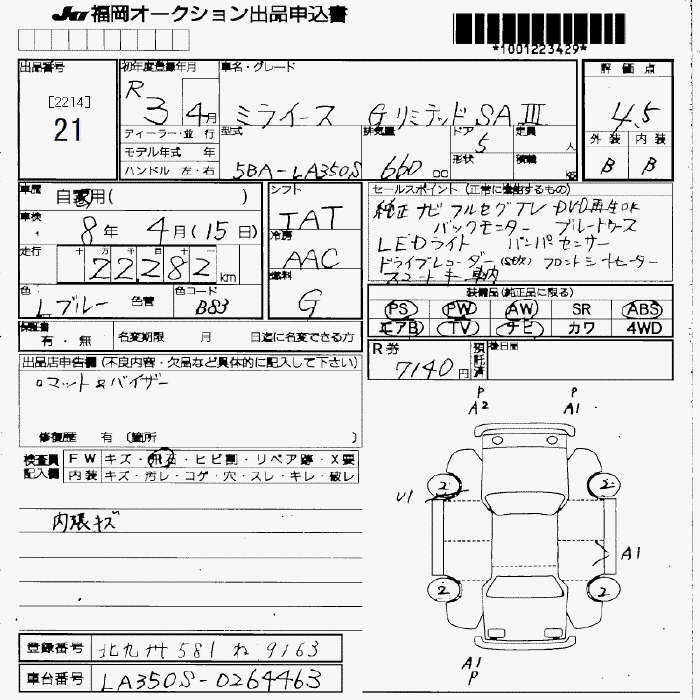 JU 福岡オークション出品申込書
*1001223429*
出品番号 [2214] 21
初年度登録年月 R3 4月
ディーラー・並行
モデル年式 年
ハンドル 左・右
車名・グレード ミライース GリミテッドSAⅢ
型式 5BA-LA350S
排気量 660 cc
ドア 5
形状
定員 人
積載 kg
評価点 4.5
外装 B 内装 B
車歴 自家用( )
車検 8年 4月(15日)
走行 十 万 千 百 十 一 22,282 km
色 Lブルー 色替 色コード B83
シフト IAT
冷房 AAC
燃料 G
セールスポイント(正常に機能するもの)
純正ナビ フルセグTV DVD再生OK
バックモニター ブルートゥース
LEDライト バンパセンサー
ドライブレコーダー フロントシートヒーター
スマートキー
装備品(純正品に限る)
PS PW AW SR ABS
エアB TV ナビ カワ 4WD
保証書 有・無 名変期限 月 日迄に名変できる方
R券 7140円 預託済 備日間
出品店申告欄(不良内容・欠品など具体的に記入して下さい)
○マット&バイザー
修復歴 有(箇所 )
検査員記入欄
FW キズ・飛石・ヒビ割・リペア跡・X要
内装 キズ・汚レ・コゲ・穴・スレ・キレ・破レ
内張キズ
P P
A2 A1
2 2
U1
A1
2 2
A1
P
登録番号 北九州 581 ね 9163
車台番号 LA350S-0264463